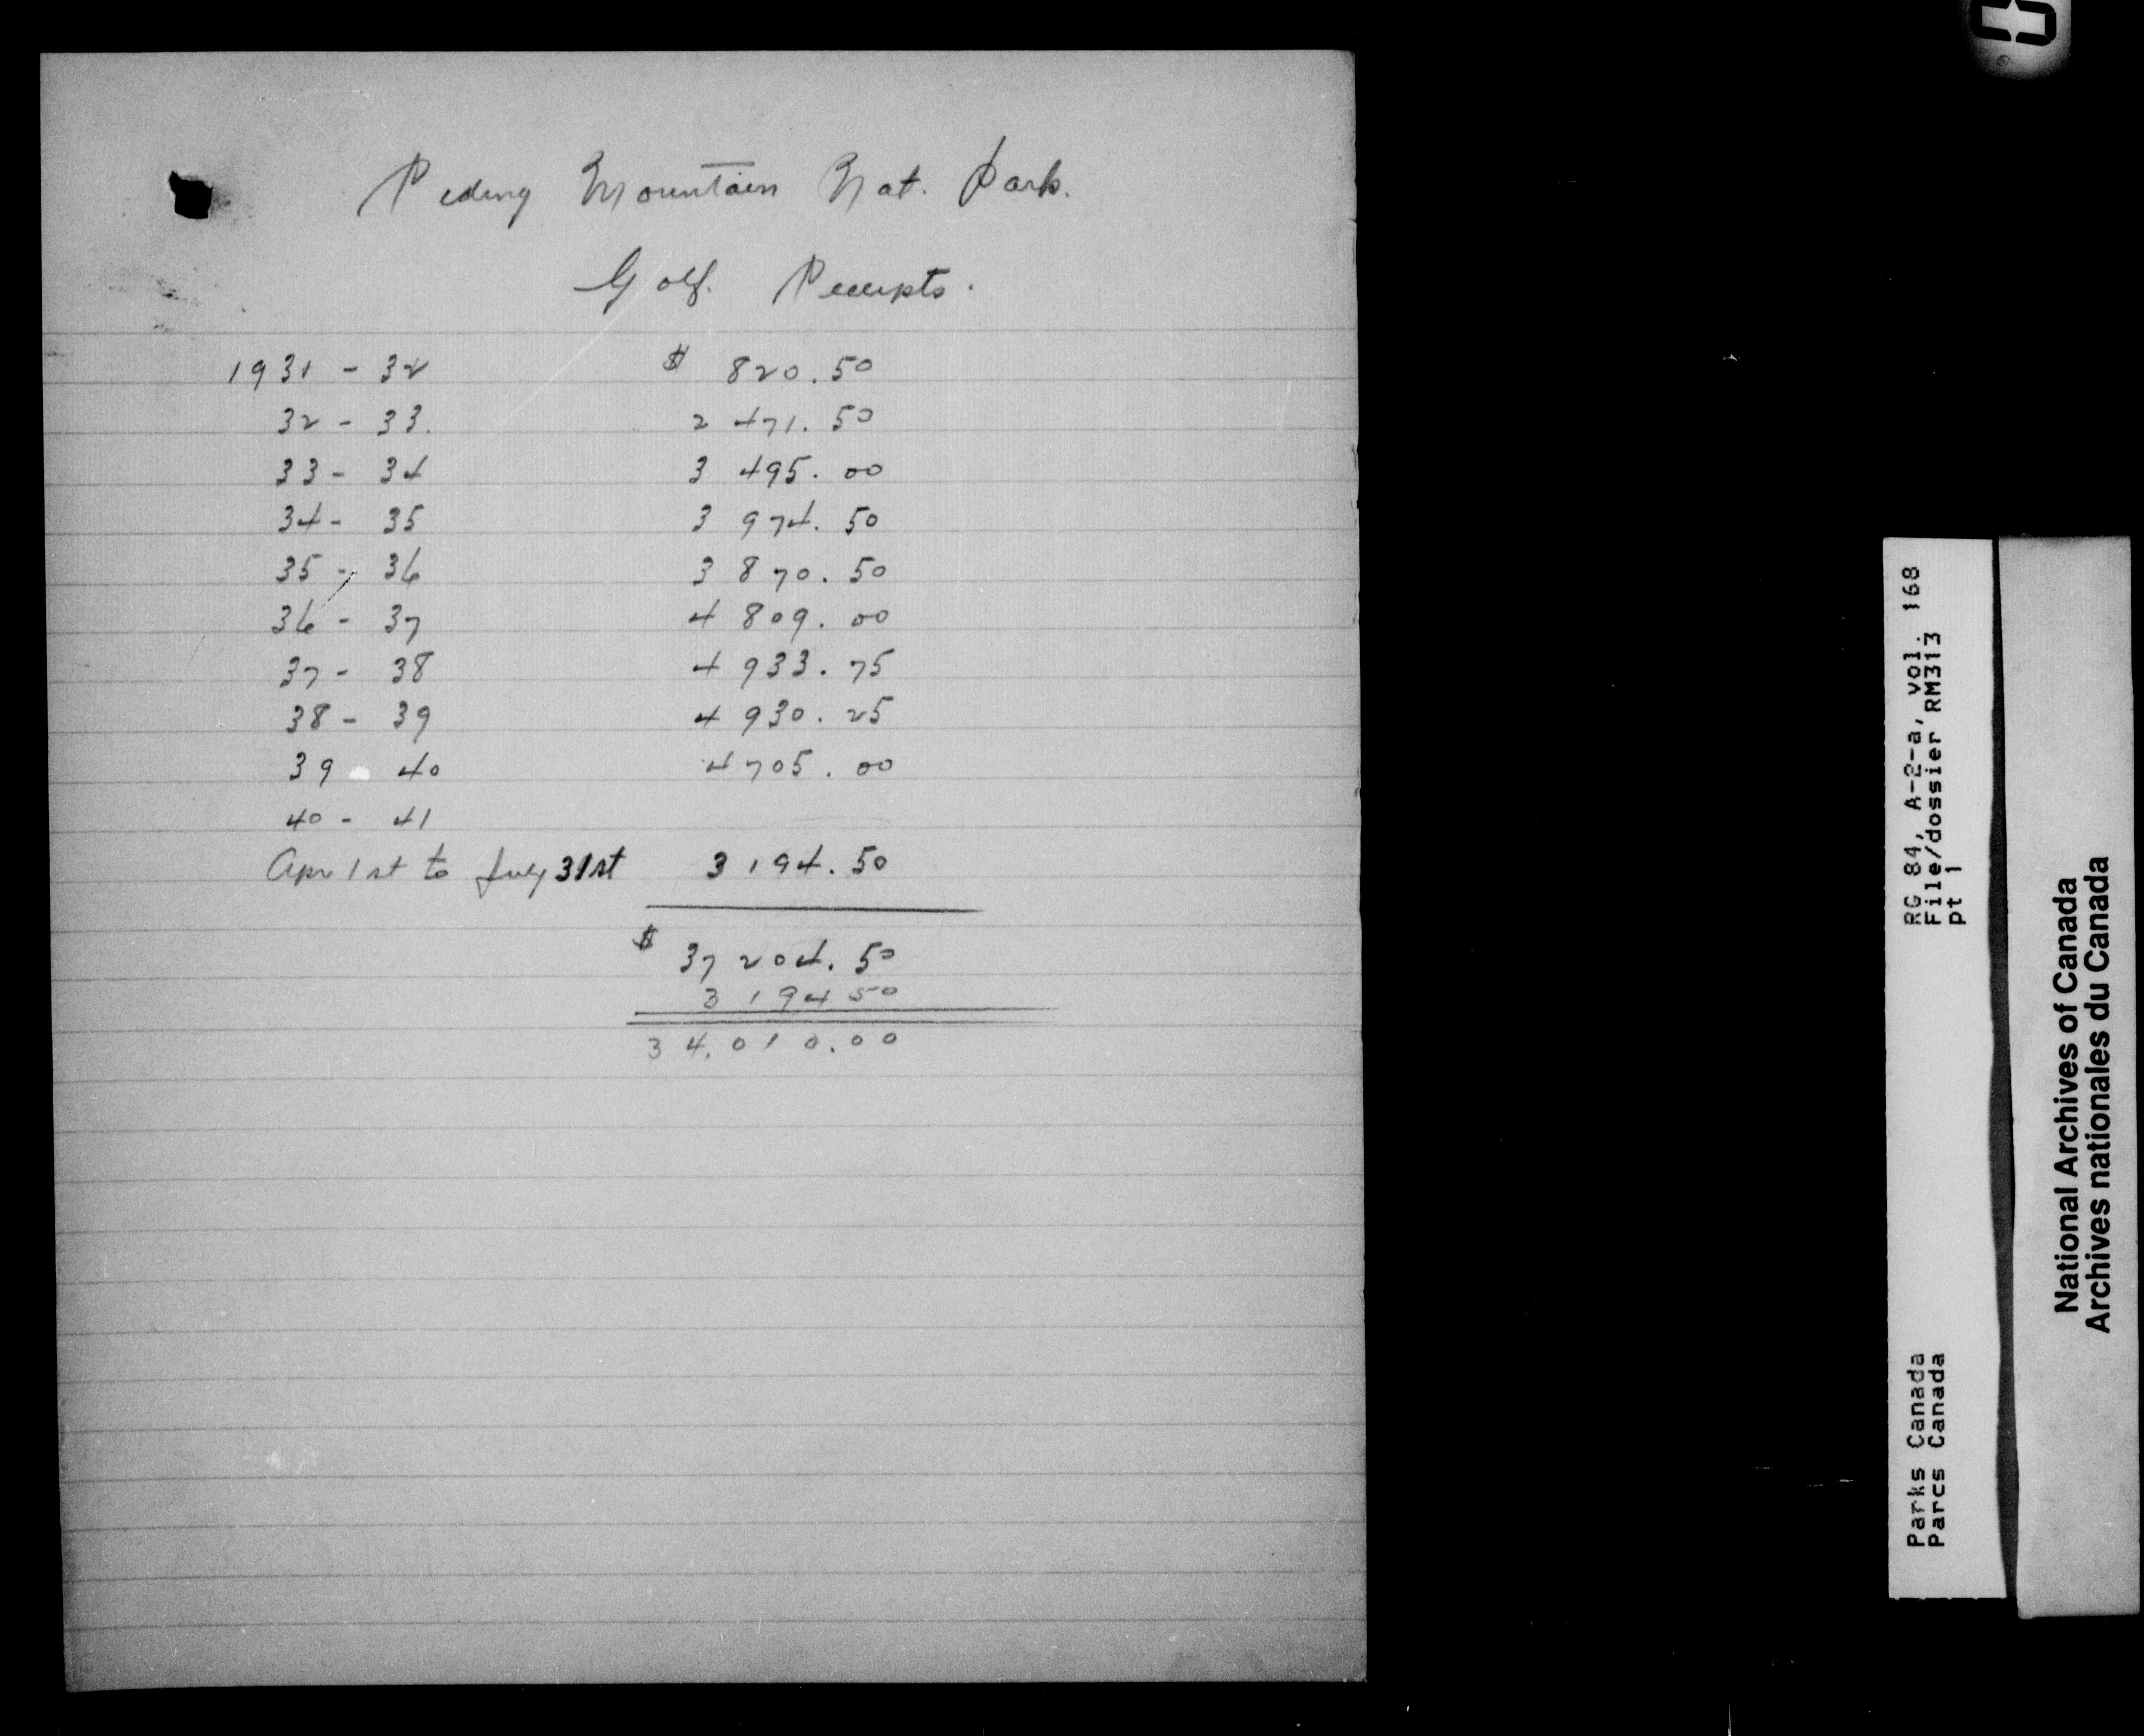 Riding Mountain Nat. Park.
Golf. Receipts.
1931 - 32 $ 820.50
32 - 33. 2 471.50
33 - 34 3 495.00
34 - 35 3 974.50
35 - 36 3 870.50
36 - 37 4 809.00
37 - 38 4 933.75
38 - 39 4 930.25
39 40 4705.00
40 - 41
Apr 1st to July 31st 3 194.50
$ 37 204.50
3 194 50
34,010.00
RG 84, A-2-a, vol. 168
File/dossier RM313
pt 1
Parks Canada
Parcs Canada
National Archives of Canada
Archives nationales du Canada